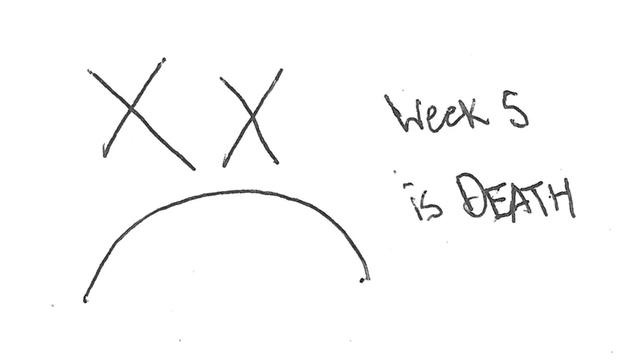 Week 5
is DEATH